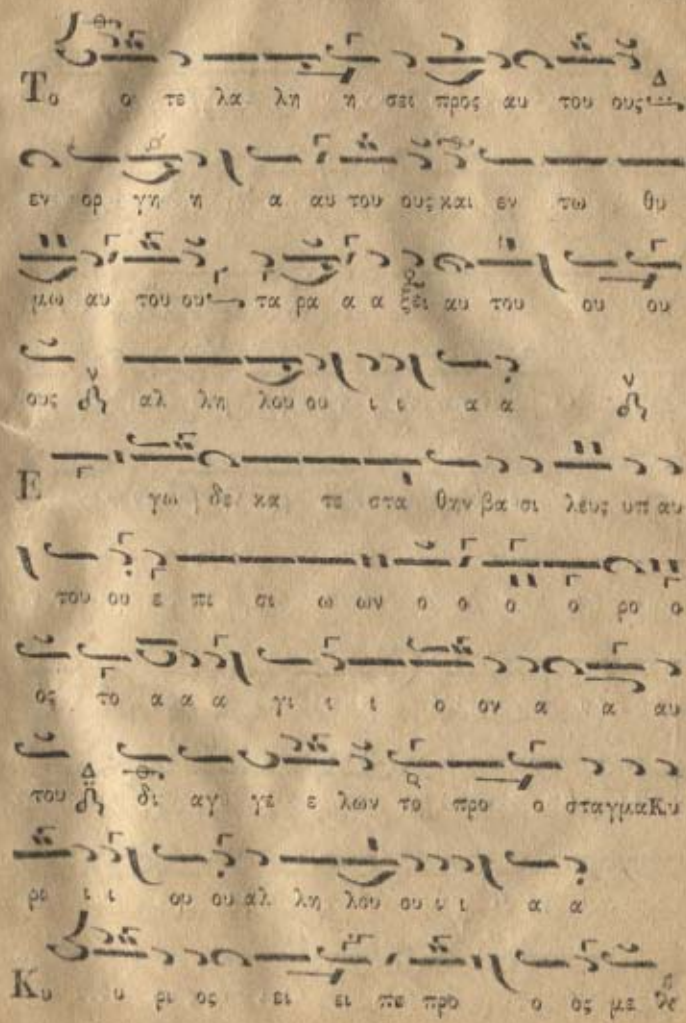 Το ο τε λα λη η σει προς αυ του ους Δ
εν ορ γη η α αυ του ους και εν τω θυ
μω αυ του ου Γ τα ρα α α ξει αυ του ου ου
ους ν αλ λη λου ου ι ι α α ν
Ε γω δε κα τε στα θην βα σι λευς υπ αυ
του ου ε πι σι ω ων ο ο ο ο ρο ο
ος το α α α γι ι ι ο ον α α αυ
του Δ δι αγ γε ε λων το προ ο σταγμα Κυ
ρι ι ι ου ου αλ λη λου ου ι ι α α
Κυ υ ρι ος ει ει πε προ ο ος με